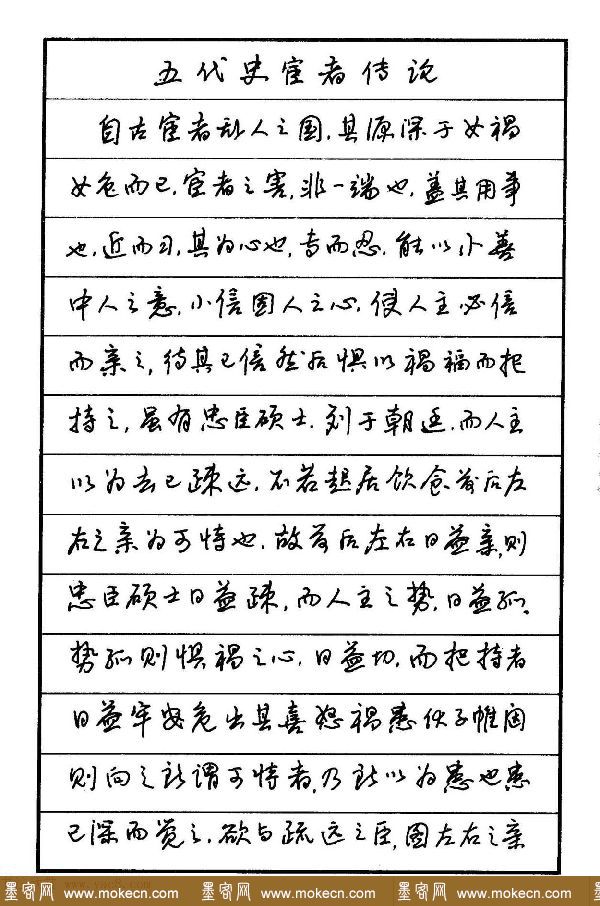 五代史宦者传论
自古宦者乱人之国，其源深于女祸
女色而已，宦者之害，非一端也，盖其用事
也，近而习，其为心也，专而忍，能以小善
中人之意，小信固人之心，使人主必信
而亲之，待其已信然后惧以祸福而把
持之，虽有忠臣硕士，列于朝廷，而人主
以为去己疏远，不若起居饮食前后左
右之亲为可恃也，故前后左右日益亲，则
忠臣硕士日益疏，而人主之势，日益孤，
势孤则惧祸之心，日益切，而把持者
日益牢安危出其喜怒祸患伏于帷闼
则向之所谓可恃者，乃所以为患也患
已深而觉之，欲与疏远之臣，图左右之亲
墨客网 www.mokecn.com 墨客网 www.mokecn.com 墨客网 www.mokecn.com